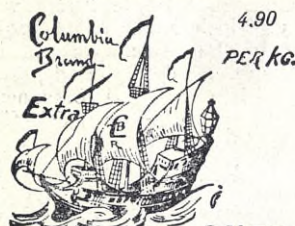 Columbia
Brand
Extra
4.90
PER KG.